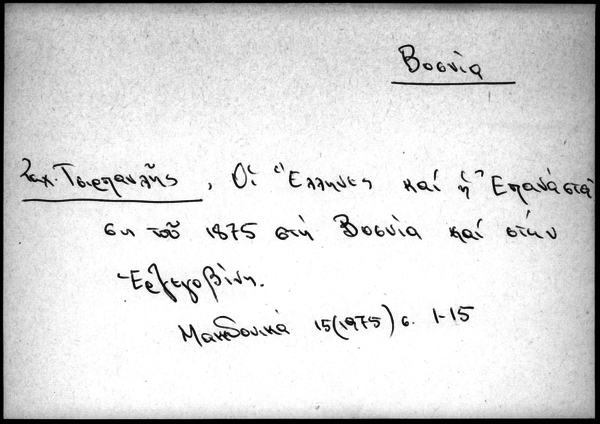 Βοσνία
Ζαχ. Τσιρπανλῆς, Οἱ Ἕλληνες καί ἡ Ἐπανάστα
ση τοῦ 1875 στή Βοσνία καί στήν
Ἑρζεγοβίνη.
Μακεδονικά 15(1975) σ. 1-15